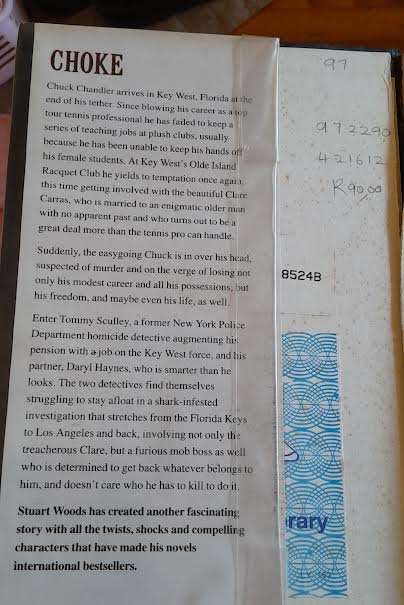 CHOKE
Chuck Chandler arrives in Key West, Florida at the
end of his tether. Since blowing his career as a top
tour tennis professional he has failed to keep a
series of teaching jobs at plush clubs, usually
because he has been unable to keep his hands off
his female students. At Key West's Olde Island
Racquet Club he yields to temptation once again,
this time getting involved with the beautiful Clare
Carras, who is married to an enigmatic older man
with no apparent past and who turns out to be a
great deal more than the tennis pro can handle.
Suddenly, the easygoing Chuck is in over his head,
suspected of murder and on the verge of losing not
only his modest career and all his possessions, but
his freedom, and maybe even his life, as well.
Enter Tommy Sculley, a former New York Police
Department homicide detective augmenting his
pension with a job on the Key West force, and his
partner, Daryl Haynes, who is smarter than he
looks. The two detectives find themselves
struggling to stay afloat in a shark-infested
investigation that stretches from the Florida Keys
to Los Angeles and back, involving not only the
treacherous Clare, but a furious mob boss as well
who is determined to get back whatever belongs to
him, and doesn't care who he has to kill to do it.
Stuart Woods has created another fascinating
story with all the twists, shocks and compelling
characters that have made his novels
international bestsellers.
97
972290
421612
R90,00
85248
rary